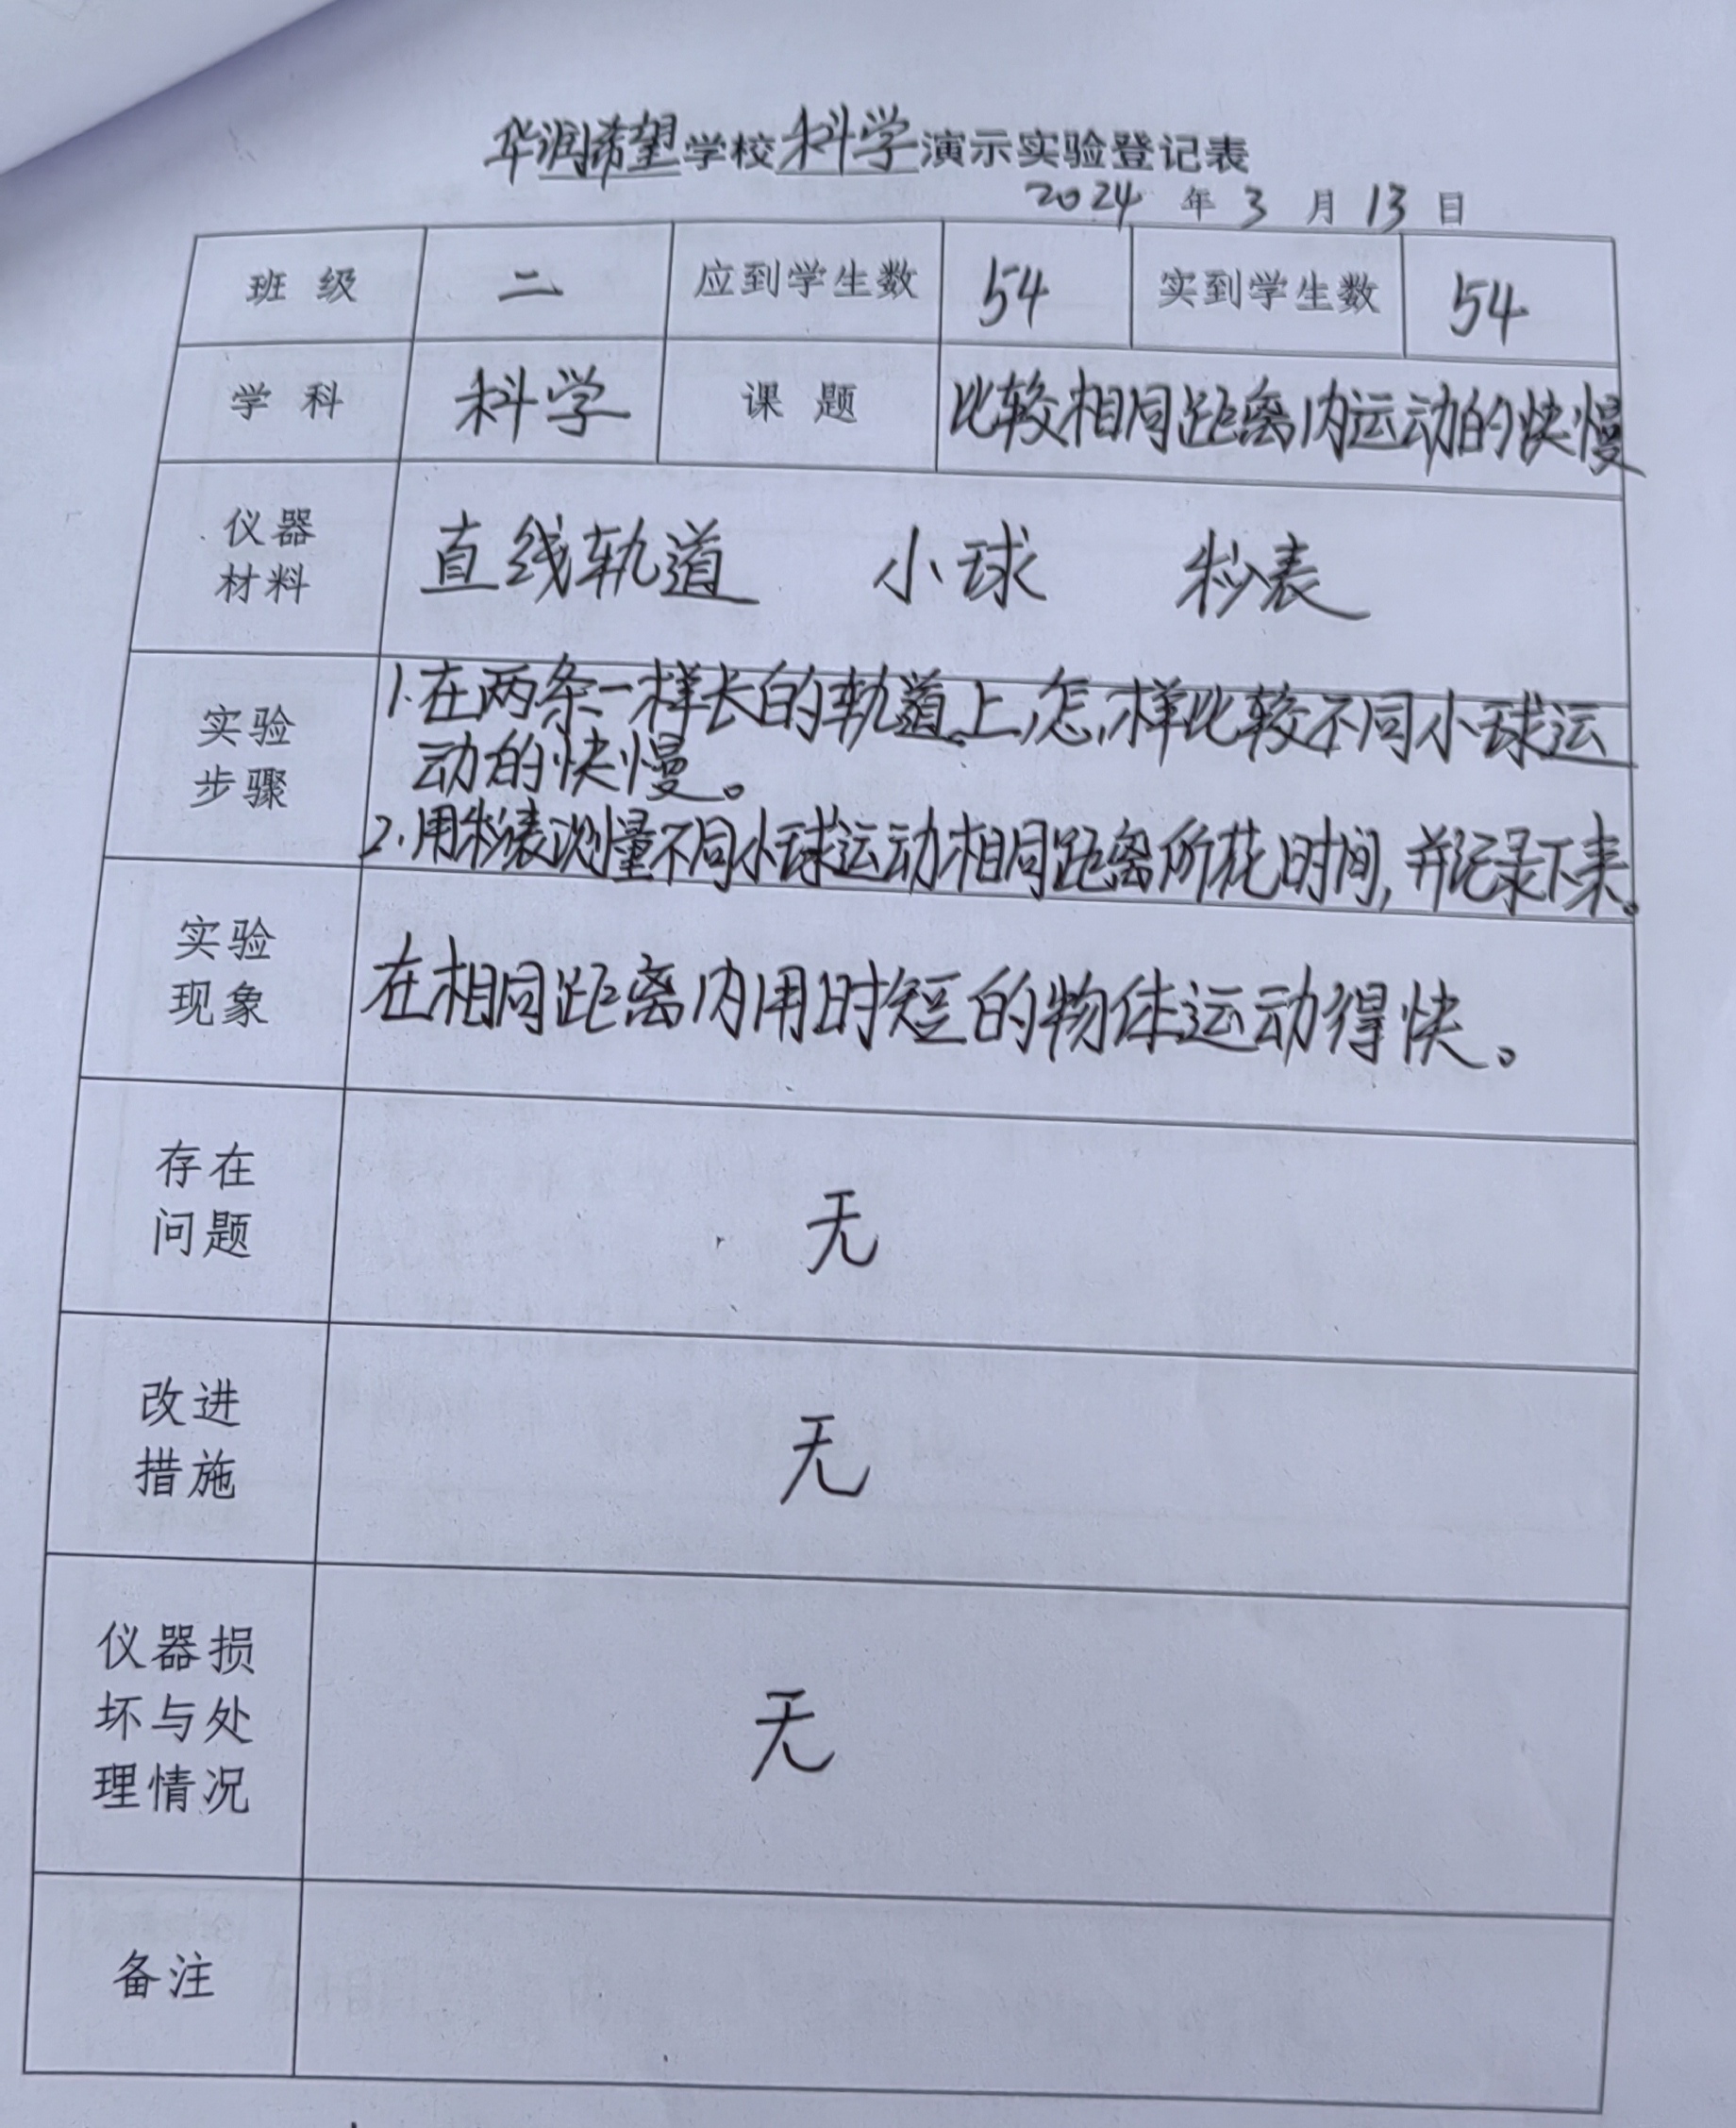 华润希望学校科学演示实验登记表
2024年3月13日
班级 二 应到学生数 54 实到学生数 54
学科 科学 课题 比较相同距离内运动的快慢
仪器
材料
直线轨道 小球 秒表
实验
步骤
1.在两条一样长的轨道上,怎样比较不同小球运
动的快慢。
2.用秒表测量不同小球运动相同距离所花时间,并记录下来。
实验
现象
在相同距离内用时短的物体运动得快。
存在
问题
无
改进
措施
无
仪器损
坏与处
理情况
无
备注